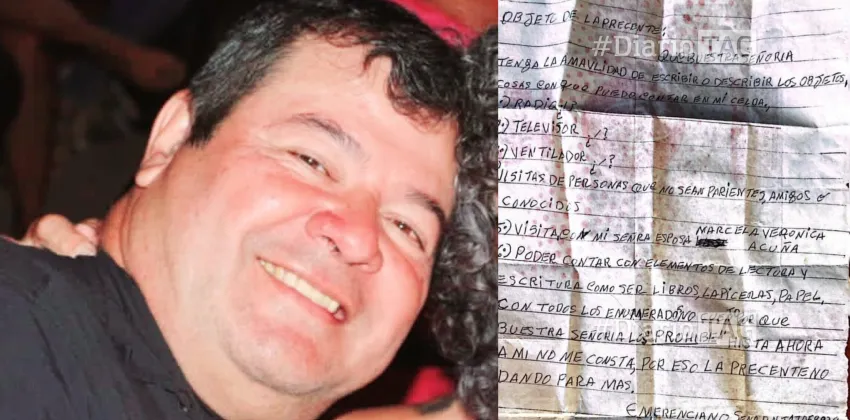 OBJETO DE LA PRECENTE:
#DiarioTAG
QUE BUESTRA SEÑORIA
TENGA LA AMAVLIDAD DE ESCRIBIR O DESCRIBIR LOS OBJETOS,
COSAS CON QUE PUEDO CONTAR EN MI CELDA,
) RADIO ¿/?
) TELEVISOR ¿/?
) VENTILADOR ¿/?
VISITAS DE PERSONAS QUE NO SEAN PARIENTES, AMIGOS O
CONOCIDOS
5) VISITA CON MI SEÑRA ESPOSA MARCELA VERONICA
ACUÑA
6) PODER CONTAR CON ELEMENTOS DE LECTURA Y
ESCRITURA COMO SER LIBROS, LAPICERAS, PAPEL,
CON TODOS LOS ENUMERADO QUE
#DiarioTAG
BUESTRA SEÑORIA LOS PROHIBE HISTA AHORA
A MI NO ME CONSTA, POR ESO LA PRECENTE NO
DANDO PARA MAS,
EMERENCIANO